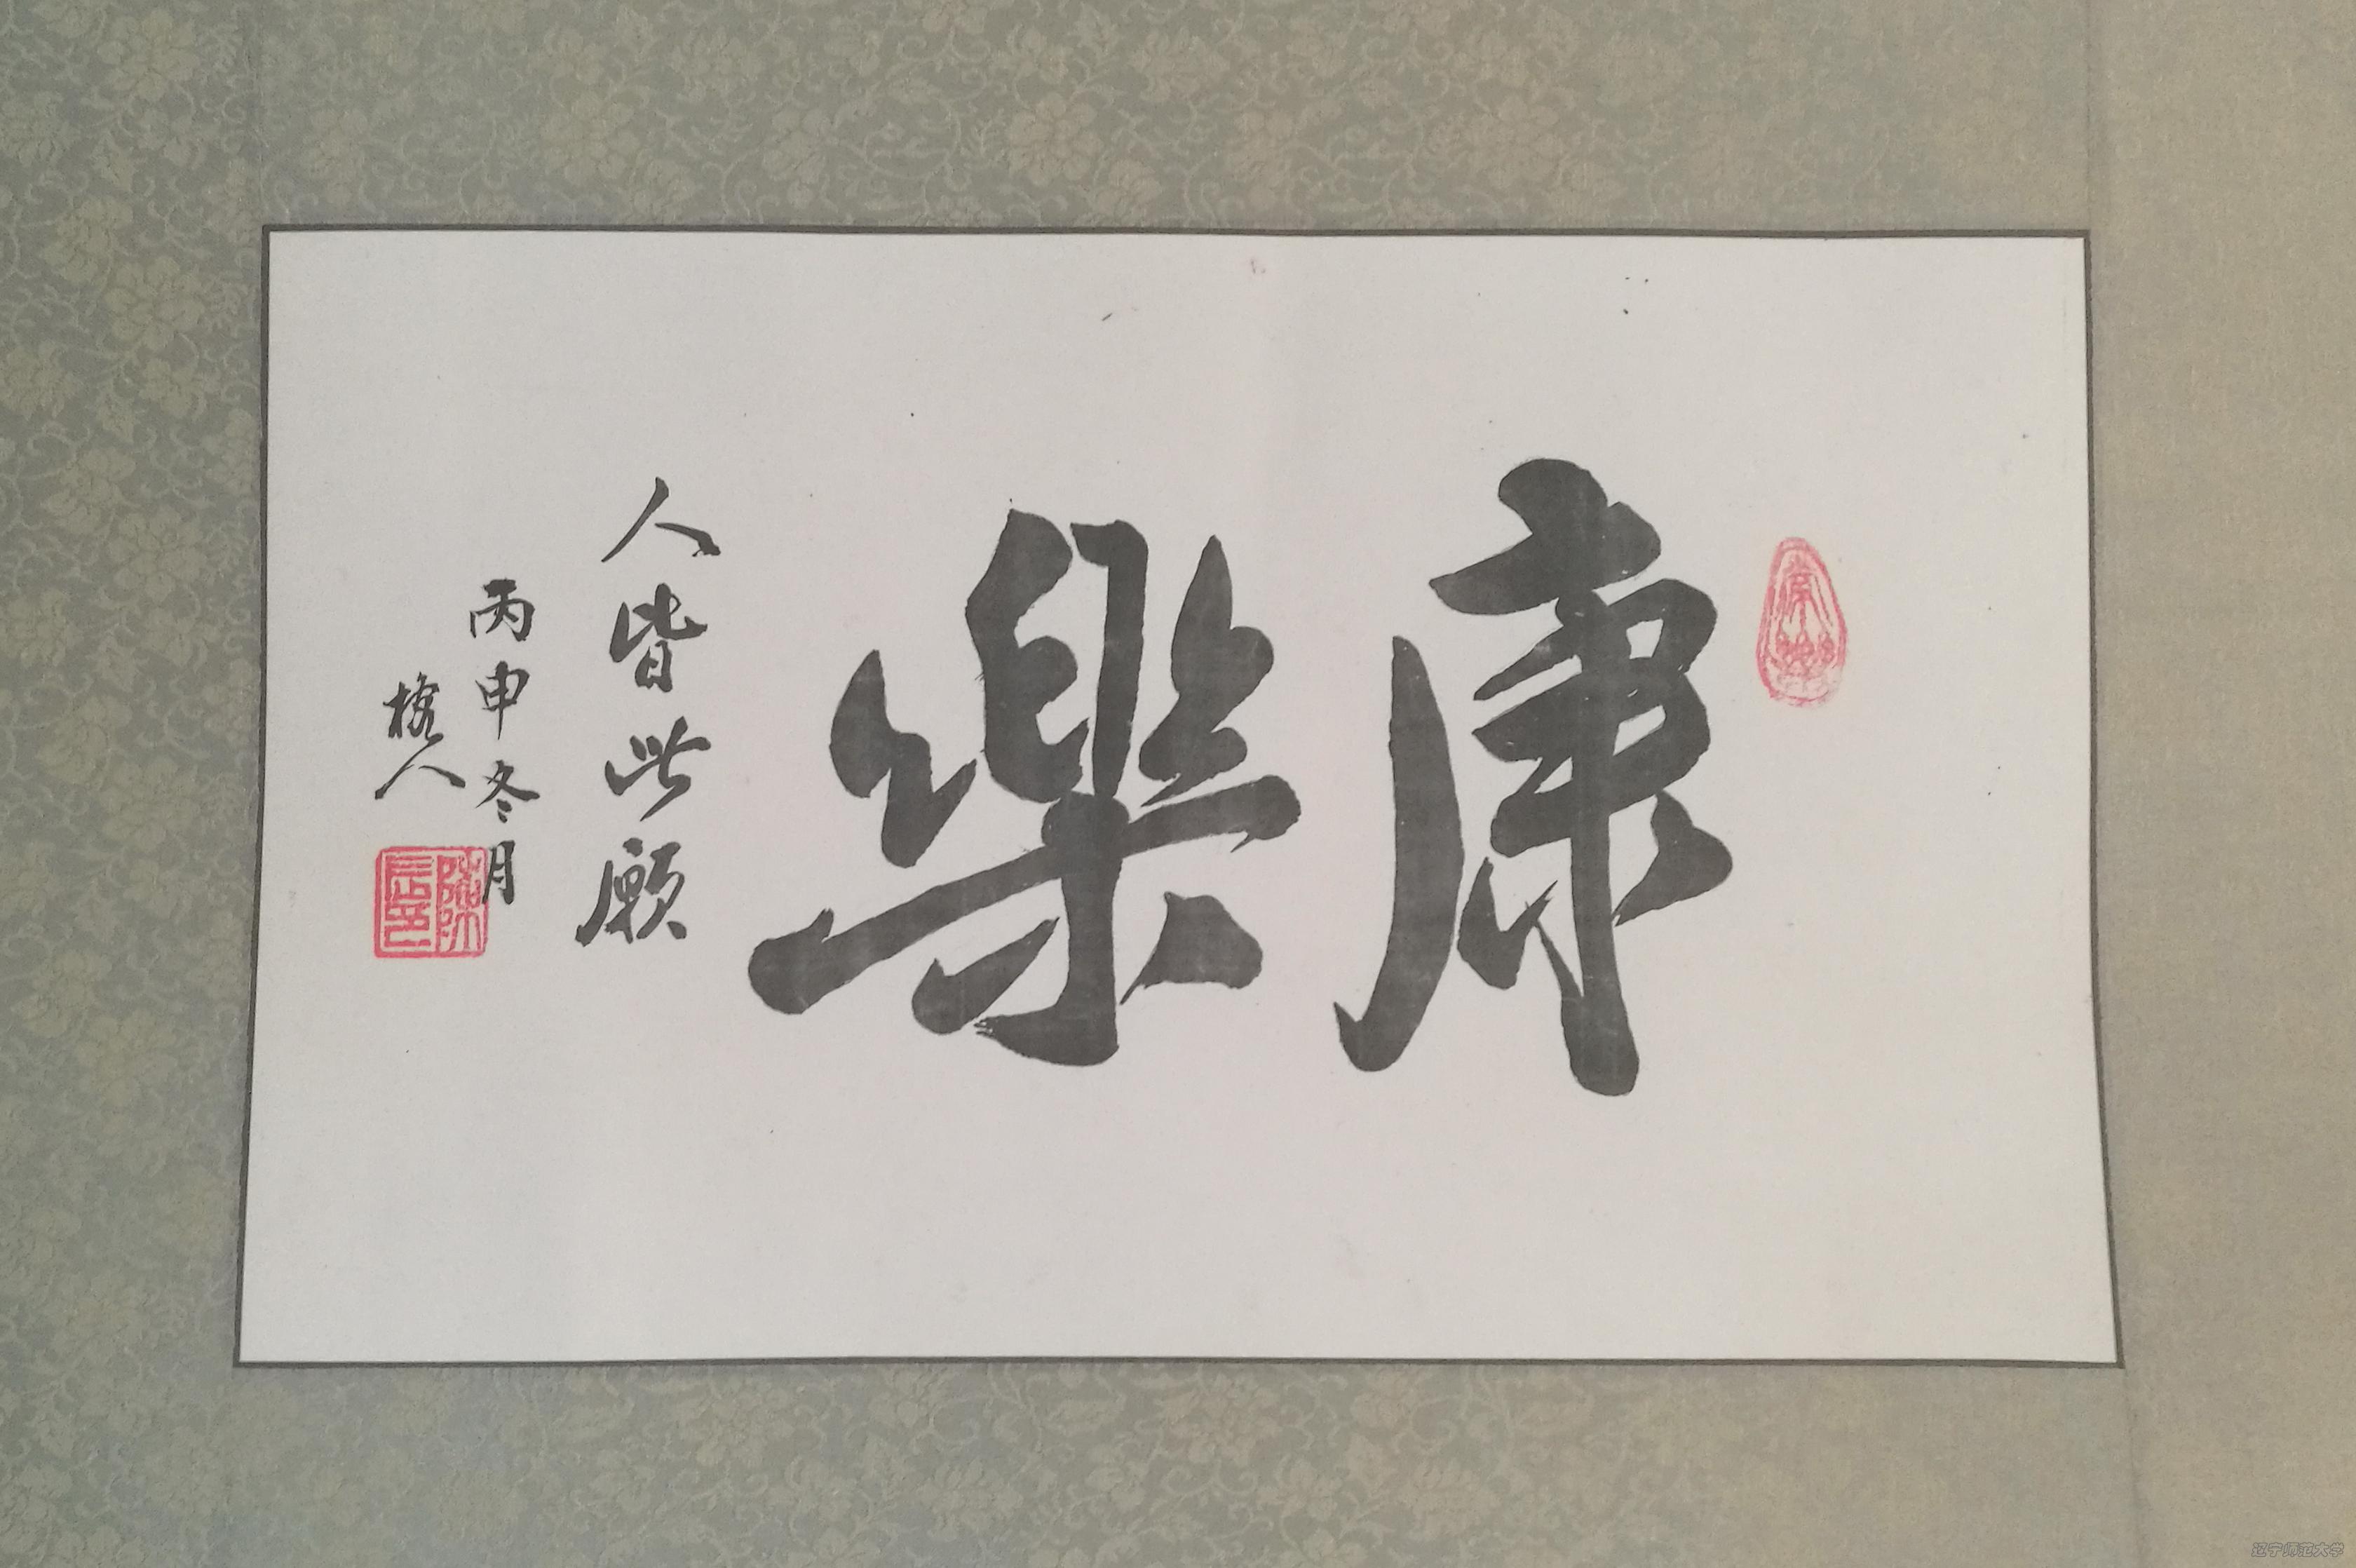 康樂
人皆此願
丙申冬月
辽宁师范大学